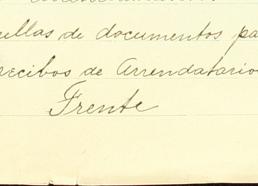 ellas de documentos pa
recibos de Arrendatario
Frente